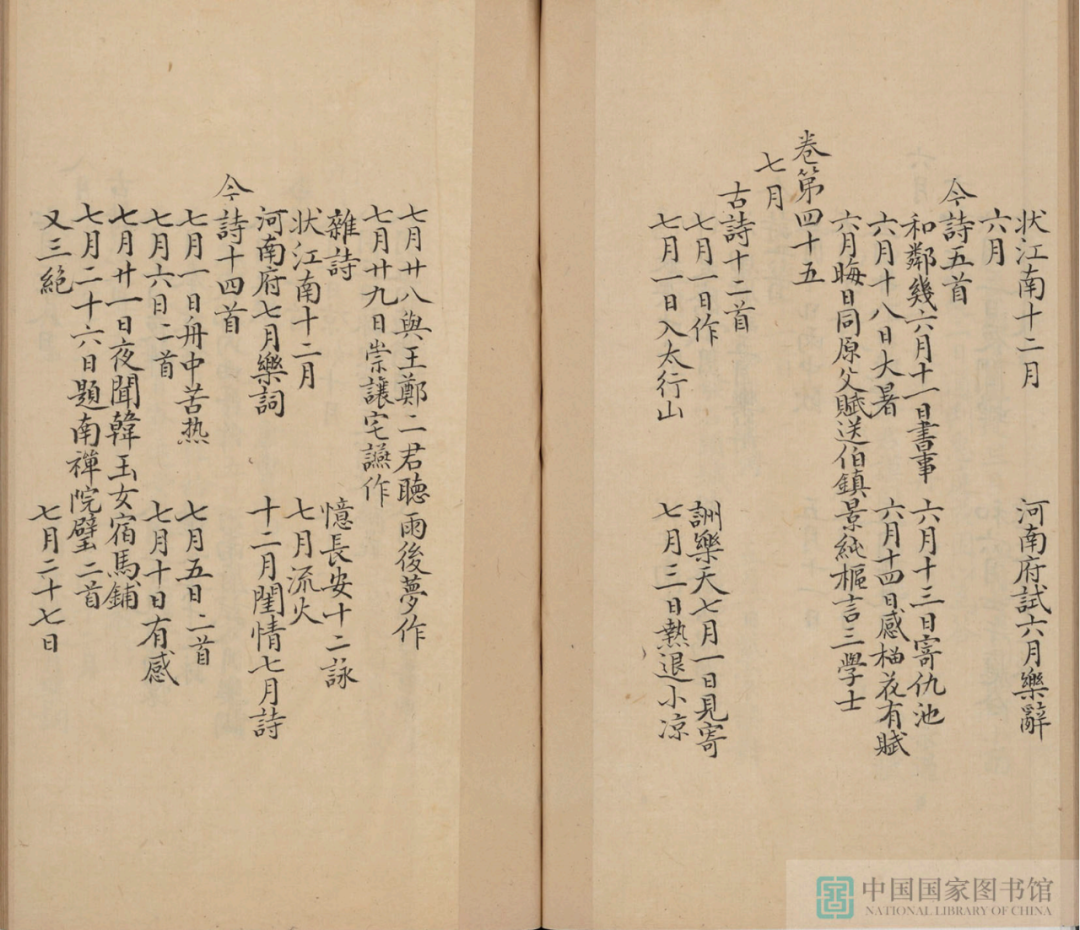 状江南十二月　河南府試六月樂辭
六月
今詩五首
和鄰幾六月十一日書事　六月十三日寄仇池
六月十八日大暑　六月十四日感榴花有賦
六月晦日同原父賦送伯鎮景純樞言三學士
卷第四十五
七月
古詩十二首
七月一日作　詶樂天七月一日見寄
七月一日入太行山　七月三日熱退小凉
七月廿八與王鄭二君聽雨後夢作
七月廿九日崇讓宅讌作
雜詩　憶長安十二詠
状江南十二月　七月流火
河南府七月樂詞　十二月閨情七月詩
今詩十四首
七月一日舟中苦热　七月五日二首
七月六日二首　七月十日有感
七月廿一日夜聞韓玉女宿馬鋪
七月二十六日題南禪院壁二首
又三絶　七月二十七日
中国国家图书馆
NATIONAL LIBRARY OF CHINA